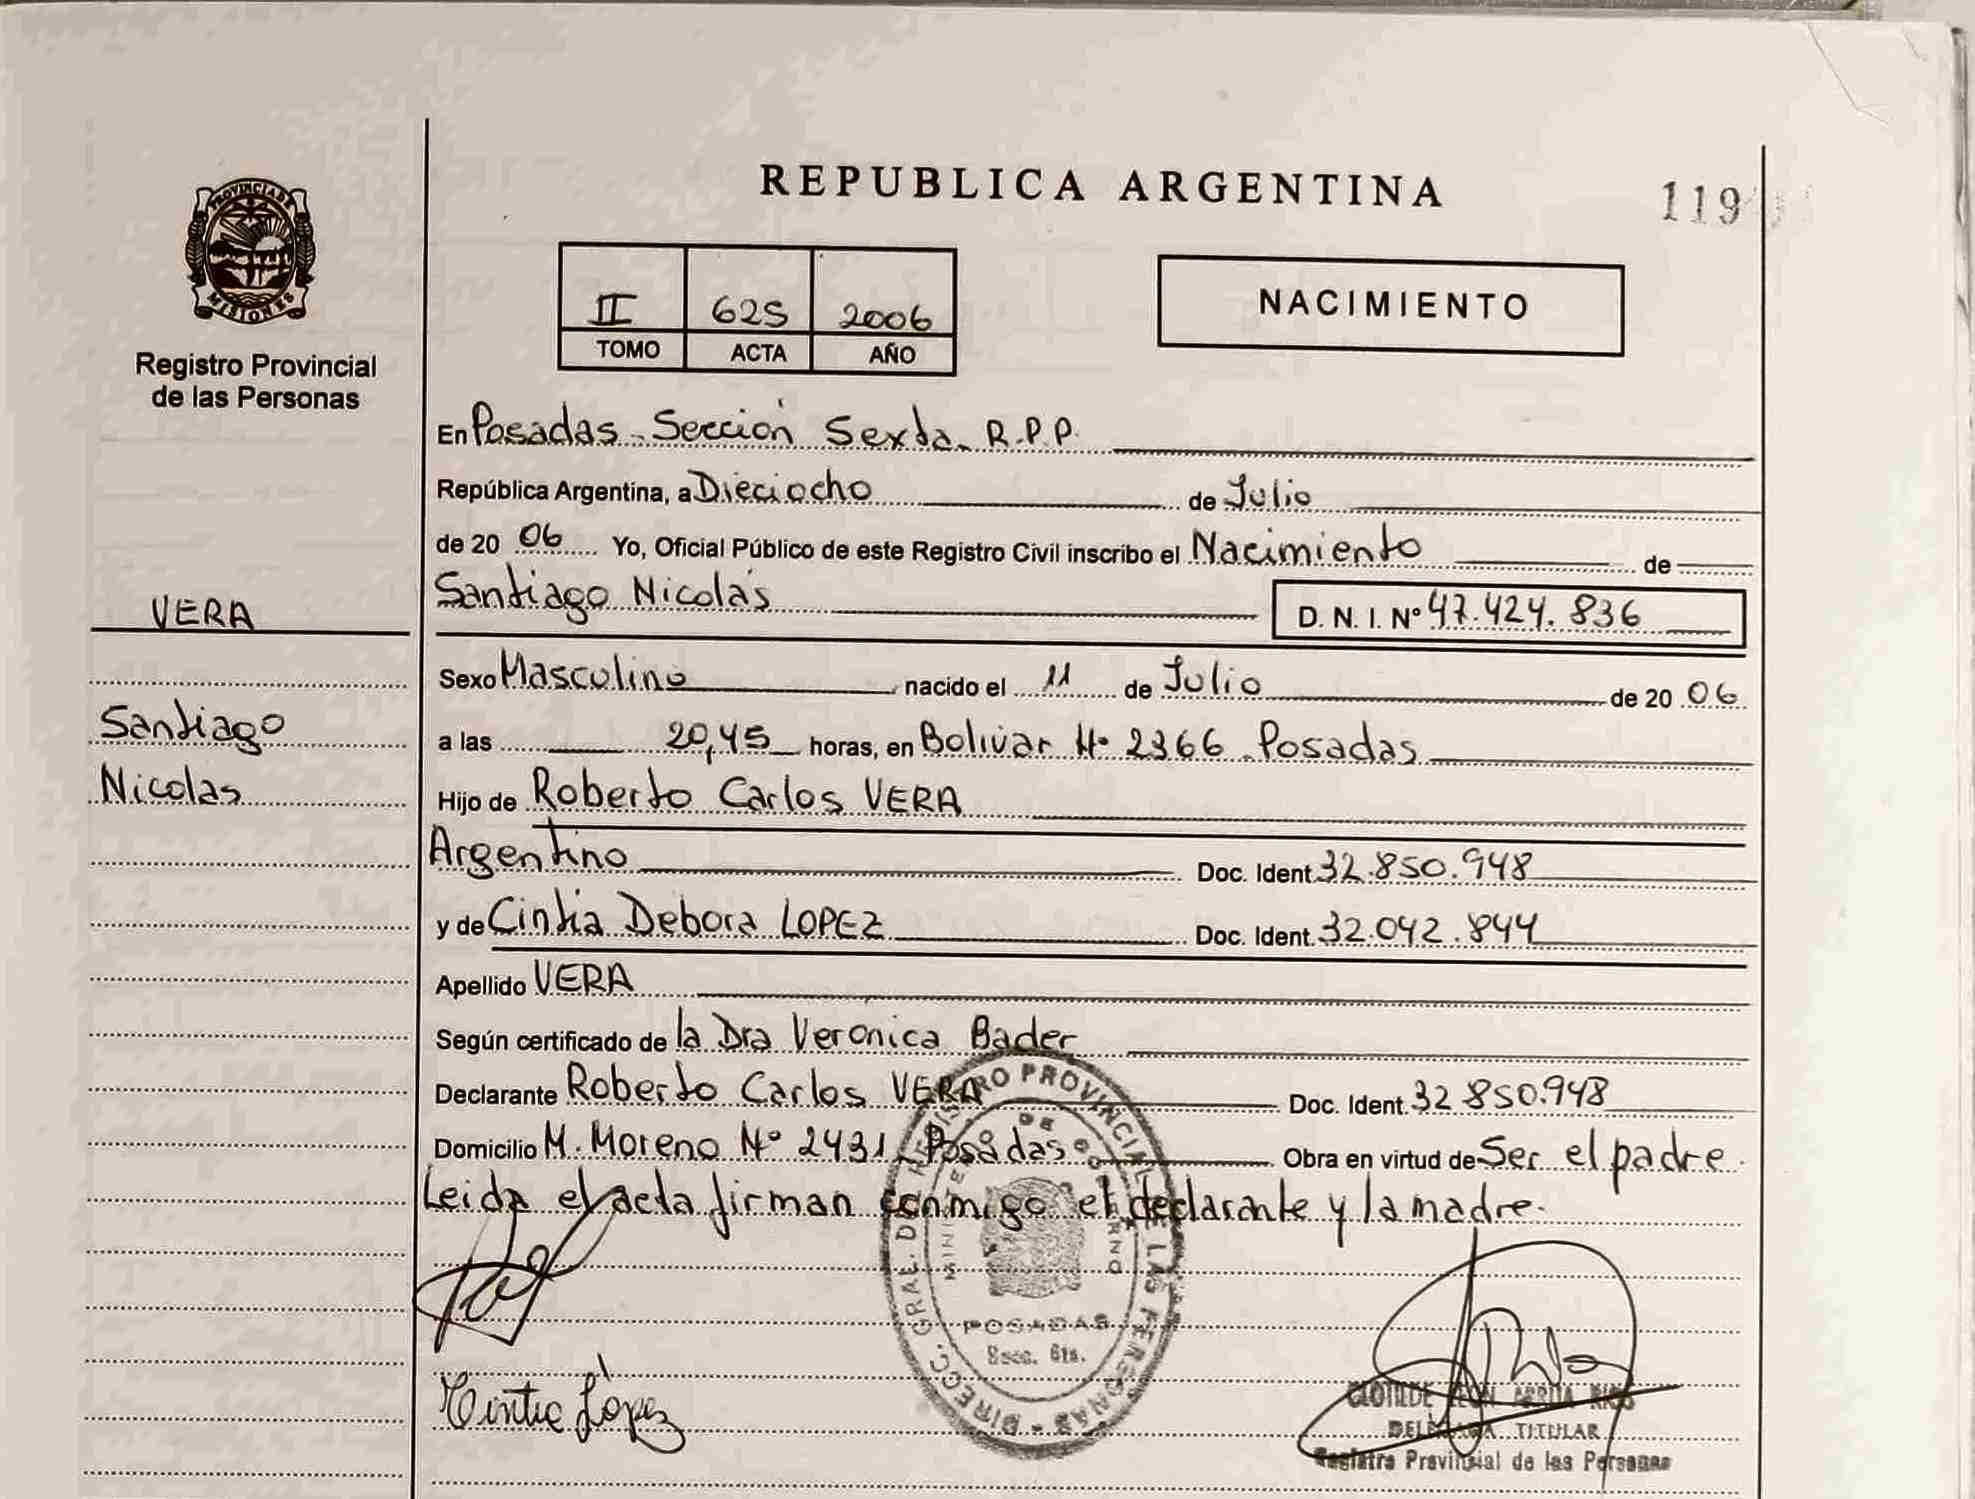 REPUBLICA ARGENTINA
119
PROVINCIA DE
MISIONES
Registro Provincial
de las Personas
II 625 2006
TOMO ACTA AÑO
NACIMIENTO
En Posadas - Sección Sexta. R.P.P.
República Argentina, a Dieciocho de Julio
de 20 06 Yo, Oficial Público de este Registro Civil inscribo el Nacimiento de
Santiago Nicolás D. N. I. Nº 47.424.836
VERA
Sexo Masculino nacido el 11 de Julio de 20 06
Santiago
a las 20,45 horas, en Bolivar Nº 2366 Posadas
Nicolas
Hijo de Roberto Carlos VERA
Argentino Doc. Ident. 32.850.948
y de Cintia Debora LOPEZ Doc. Ident. 32.042.844
Apellido VERA
Según certificado de la Dra Veronica Bader
Declarante Roberto Carlos VERA Doc. Ident. 32 850.948
Domicilio M. Moreno Nº 2431 Posadas Obra en virtud de Ser el padre.
Leida el acta firman conmigo el declarante y la madre.
DIRECC. GRAL. DEL REGISTRO PROVINCIAL DE LAS PERSONAS
MINISTERIO DE GOBIERNO
POSADAS
Secc. 6ta.
Cintia López
CLOTILDE RIOS
DELEGADA TITULAR
Registro Provincial de las Personas